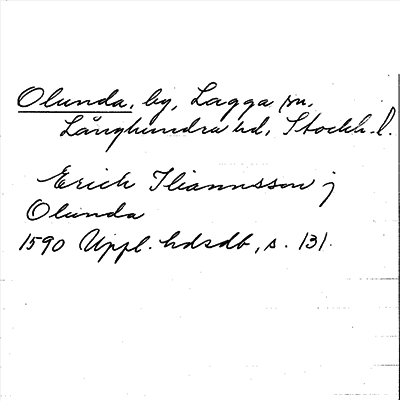 Olunda, by, Lagga sn.
Långhundra hd, Stockh. l.
Erich Iliannsson j
Olunda
1590 Uppl. hdsdb, s. 131.